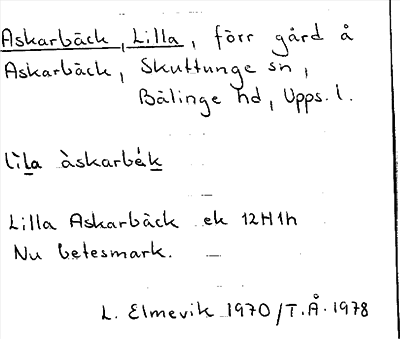 Askarbäck, Lilla, förr gård å
Askarbäck, Skuttunge sn,
Bälinge hd, Upps. l.
lìla àskarbék
Lilla Askarbäck ek 12H1h
Nu betesmark.
L. Elmevik 1970/T.Å. 1978